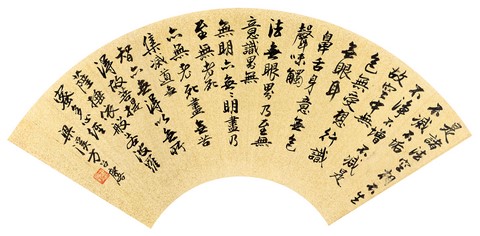 是諸法空相不生
不滅不垢
不淨不增不減是
故空中無
色無受想行識
無眼耳
鼻舌身意無色
聲味觸
法無眼界乃至無
意識界無
無明亦無無明盡乃
至無老死
亦無老死盡無苦
集滅道無
智亦無得以無所
得故菩提
薩埵依般若波羅
多心